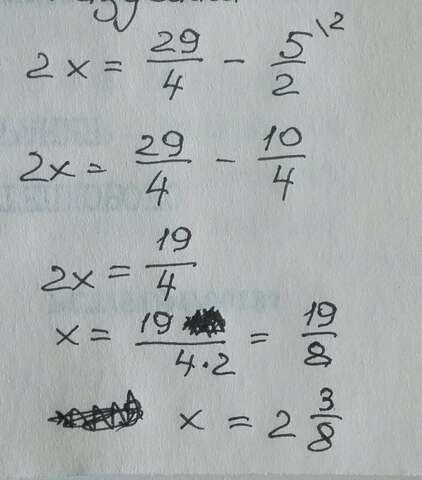 2x = 29/4 - 5/2 \2
2x = 29/4 - 10/4
2x = 19/4
x = 19/4·2 = 19/8
x = 2 3/8